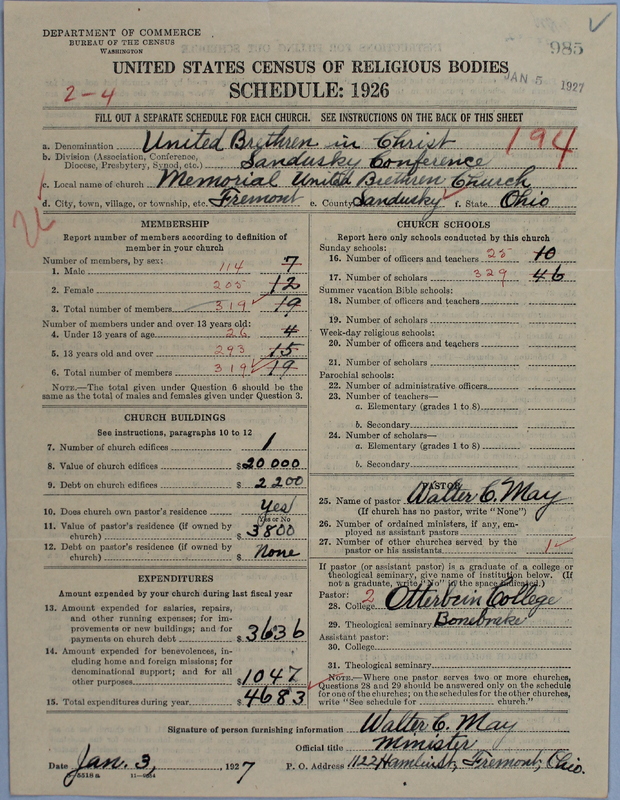 DEPARTMENT OF COMMERCE
BUREAU OF THE CENSUS
WASHINGTON
985
UNITED STATES CENSUS OF RELIGIOUS BODIES
JAN 5 1927
2-4
SCHEDULE: 1926
FILL OUT A SEPARATE SCHEDULE FOR EACH CHURCH. SEE INSTRUCTIONS ON THE BACK OF THIS SHEET
a. Denomination United Brethren in Christ 194
b. Division (Association, Conference,
Diocese, Presbytery, Synod, etc.) Sandusky Conference
c. Local name of church Memorial United Brethren Church
d. City, town, village, or township, etc. Fremont e. County Sandusky f. State Ohio
MEMBERSHIP
Report number of members according to definition of
member in your church
Number of members, by sex:
1. Male 114 7
2. Female 205 12
3. Total number of members 319 19
Number of members under and over 13 years old:
4. Under 13 years of age 26 4
5. 13 years old and over 293 15
6. Total number of members 319 19
NOTE.—The total given under Question 6 should be the
same as the total of males and females given under Question 3.
CHURCH BUILDINGS
See instructions, paragraphs 10 to 12
7. Number of church edifices 1
8. Value of church edifices $20 000
9. Debt on church edifices $ 2 200
10. Does church own pastor's residence Yes
Yes or No
11. Value of pastor's residence (if owned by
church) $ 3800
12. Debt on pastor's residence (if owned by
church) $ None
EXPENDITURES
Amount expended by your church during last fiscal year
13. Amount expended for salaries, repairs,
and other running expenses; for im-
provements or new buildings; and for
payments on church debt $3636
14. Amount expended for benevolences, in-
cluding home and foreign missions; for
denominational support; and for all
other purposes $1047
15. Total expenditures during year $4683
CHURCH SCHOOLS
Report here only schools conducted by this church
Sunday schools:
16. Number of officers and teachers 25 10
17. Number of scholars 329 46
Summer vacation Bible schools:
18. Number of officers and teachers
19. Number of scholars
Week-day religious schools:
20. Number of officers and teachers
21. Number of scholars
Parochial schools:
22. Number of administrative officers
23. Number of teachers—
a. Elementary (grades 1 to 8)
b. Secondary
24. Number of scholars—
a. Elementary (grades 1 to 8)
b. Secondary
PASTOR
25. Name of pastor Walter C. May
(If church has no pastor, write "None")
26. Number of ordained ministers, if any, em-
ployed as assistant pastors
27. Number of other churches served by the
pastor or his assistants 1
If pastor (or assistant pastor) is a graduate of a college or
theological seminary, give name of institution below. (If
not a graduate, write "No" in the space indicated.)
Pastor: 2
28. College Otterbein College
29. Theological seminary Bonebrake
Assistant pastor:
30. College
31. Theological seminary
NOTE.—Where one pastor serves two or more churches,
Questions 28 and 29 should be answered only on the schedule
for one of the churches; on the schedules for the other churches,
write "See schedule for church."
Signature of person furnishing information Walter C. May
Official title Minister
Date Jan. 3, 1927 P. O. Address Fremont, Ohio.